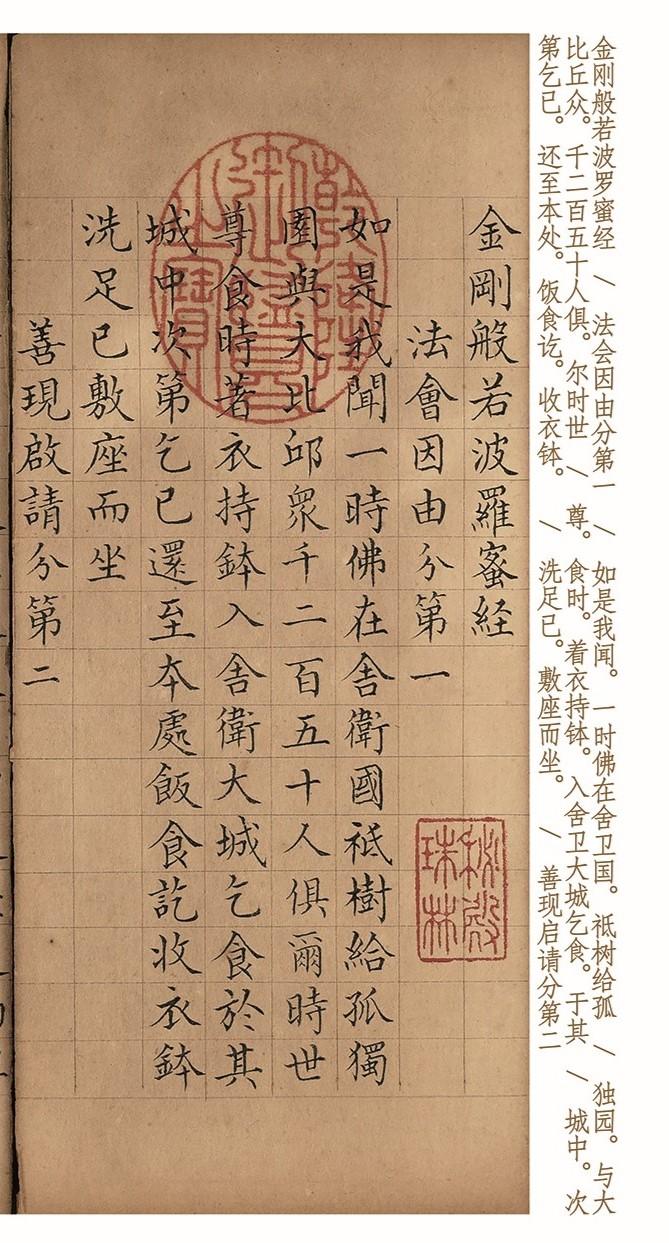 金刚般若波罗蜜经 \ 法会因由分第一 \ 如是我闻。一时佛在舍卫国。祇树给孤 \ 独园。与大
比丘众。千二百五十人俱。尔时世 \ 尊。食时。着衣持钵。入舍卫大城乞食。于其 \ 城中。次
第乞已。还至本处。饭食讫。收衣钵。 \ 洗足已。敷座而坐。 \ 善现启请分第二
金剛般若波羅蜜経
法會因由分第一
如是我聞一時佛在舍衛國祇樹給孤獨
園與大比邱衆千二百五十人俱爾時世
尊食時著衣持鉢入舍衛大城乞食於其
城中次第乞已還至夲處飯食訖收衣鉢
洗足已敷座而坐
善現啟請分第二
秘殿
珠林